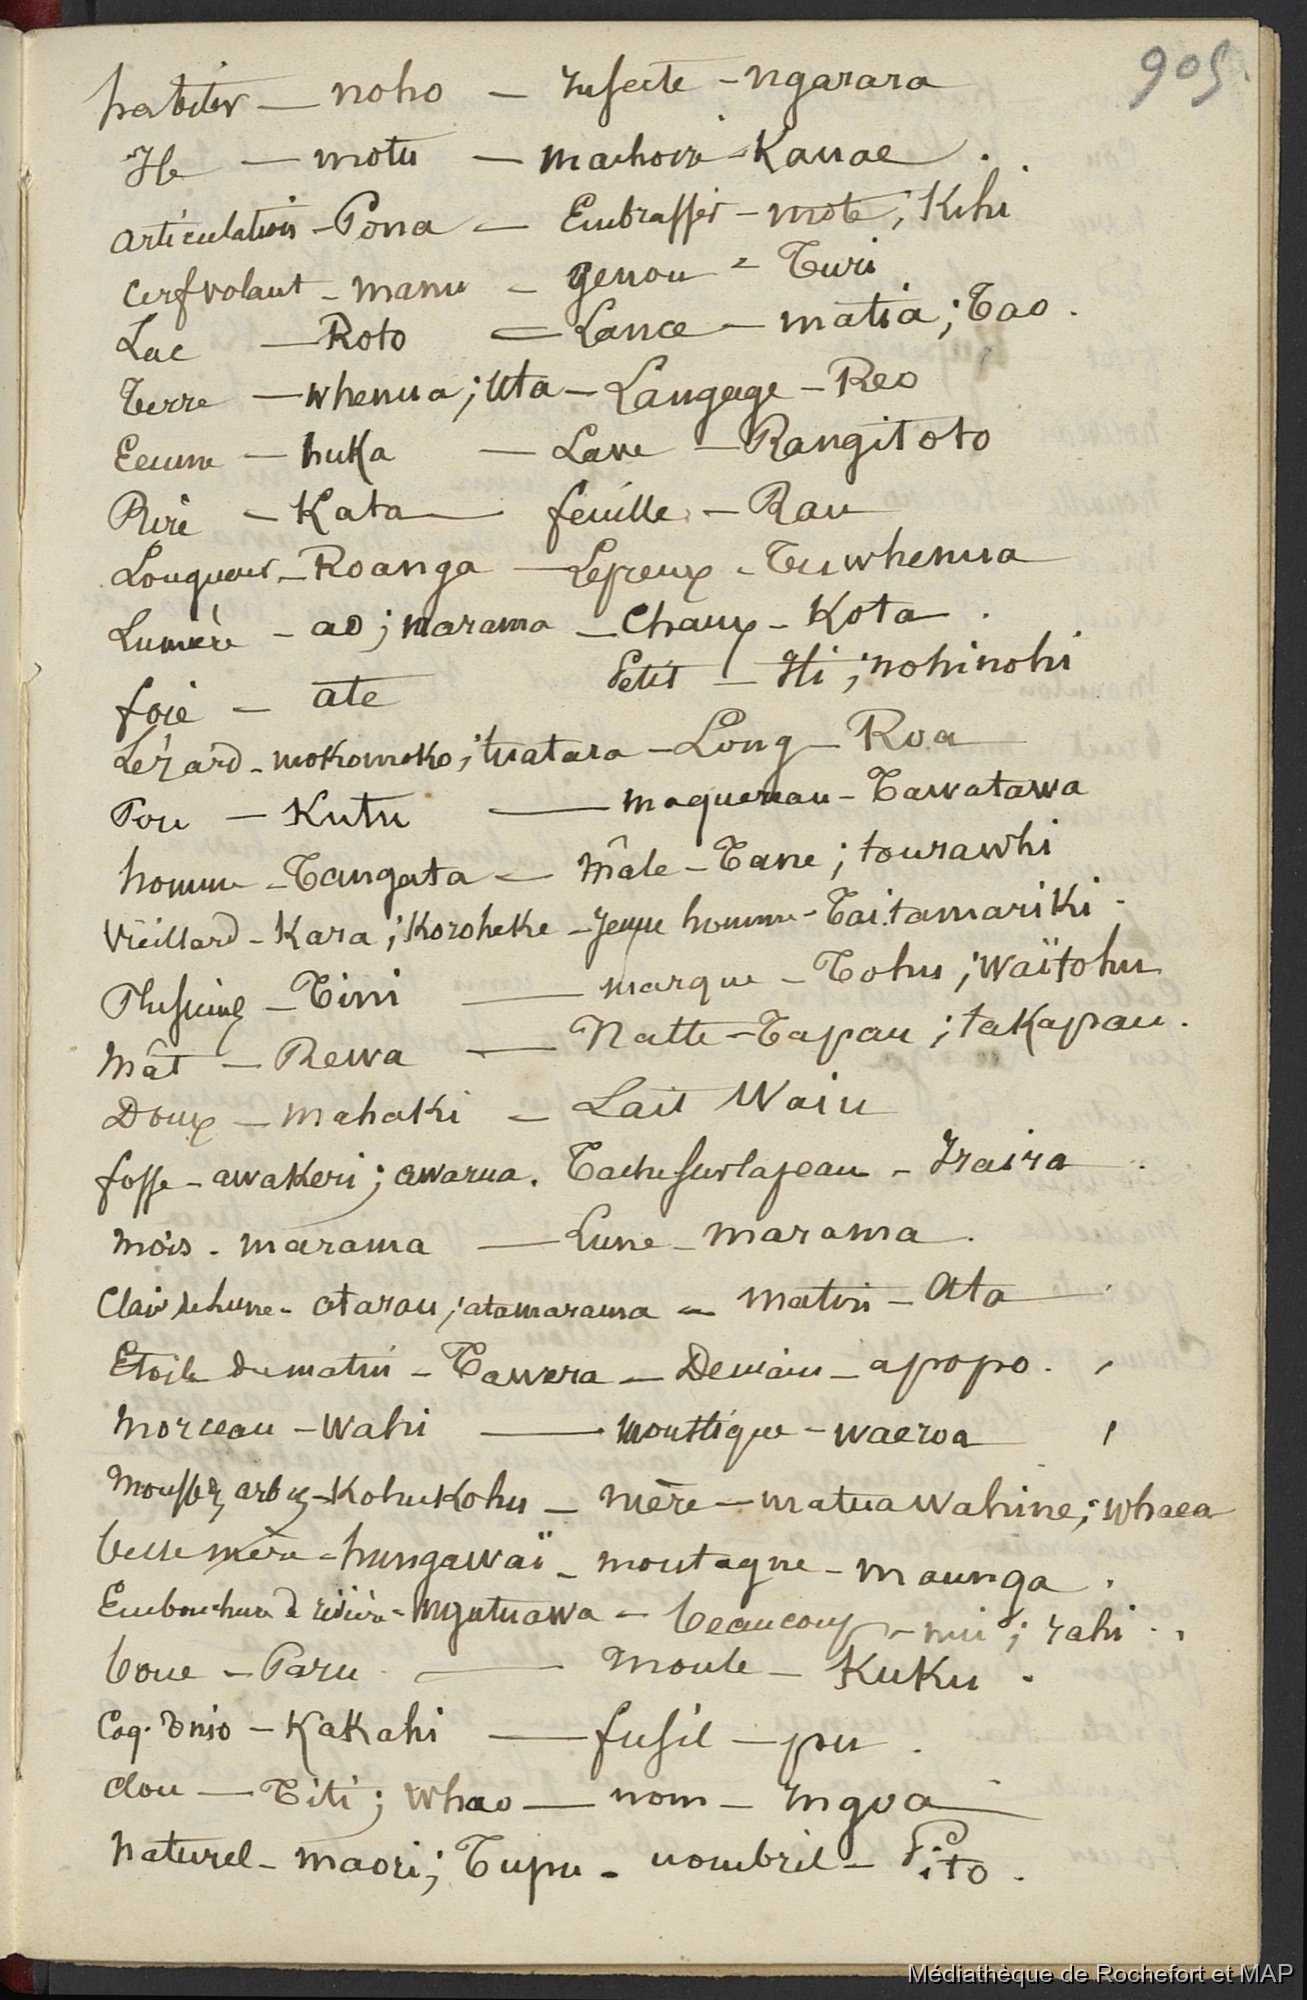 905
habiter — noho — Insecte — ngarara
Ile — motu — machoire - Kauae .
articulation - Pona — Embrasser - mote ; Kihi
Cerf volant - manu - genou = Turi
Lac — Roto — Lance — matia ; Tao .
Terre — whenua ; Uta — Langage — Reo
Ecume — huka — Lave — Rangitoto
Rire — Kata — feuille — Rau
Longueur — Roanga — Lepreux - Tuwhenua
Lumière - ao ; marama — Chaux - Kota .
foie — ate Petit — Iti ; nohinohi
Lézard - mokomoko ; tuatara — Long — Roa
Pou — Kutu — maquereau - Tawatawa
homme - Tangata — Mâle - Tane ; tourawhi
Vieillard - Kara ; Koroheke - Jeune homme - Taitamariki .
Plusieurs - Tini — marque - Tohu ; Waïtohu
Mât — Rewa — Natte - Tapau ; takapau .
Doux — mahaki - Lait Waiu
fosse - awakeri ; awarua . Tache sur la peau - Iraira .
Mois - marama — Lune - marama .
Clair de lune - atarau ; atamarama — Matin — Ata
Etoile du matin - Tawera — Demain - apopo .
Morceau - Wahi — moustique - waeroa
Mousse, arbres - Kohukohu — mère — matua Wahine ; whaea
belle mère - hungawaï - montagne - maunga .
Embouchure de rivière - ngutuawa — beaucoup - nui ; rahi .
boue — Paru — Moule — Kuku .
Coq. Unio - Kakahi — fusil — pu .
clou — Titi ; Whao — nom — Ingoa
Naturel - maori ; Tupu - nombril - Pito .
Médiathèque de Rochefort et MAP